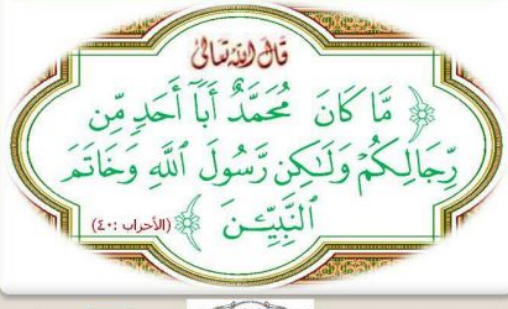 قال الله تعالى
﴿ مَّا كَانَ مُحَمَّدٌ أَبَآ أَحَدٍ مِّن
رِّجَالِكُمْ وَلَٰكِن رَّسُولَ ٱللَّهِ وَخَاتَمَ
ٱلنَّبِيِّـۧنَ ﴾ (الأحزاب :٤٠)